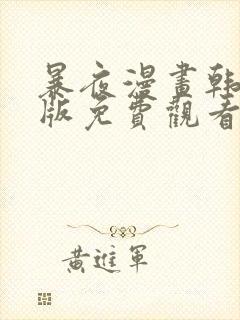 暴夜漫畫韩
版免費觀看
黃進軍